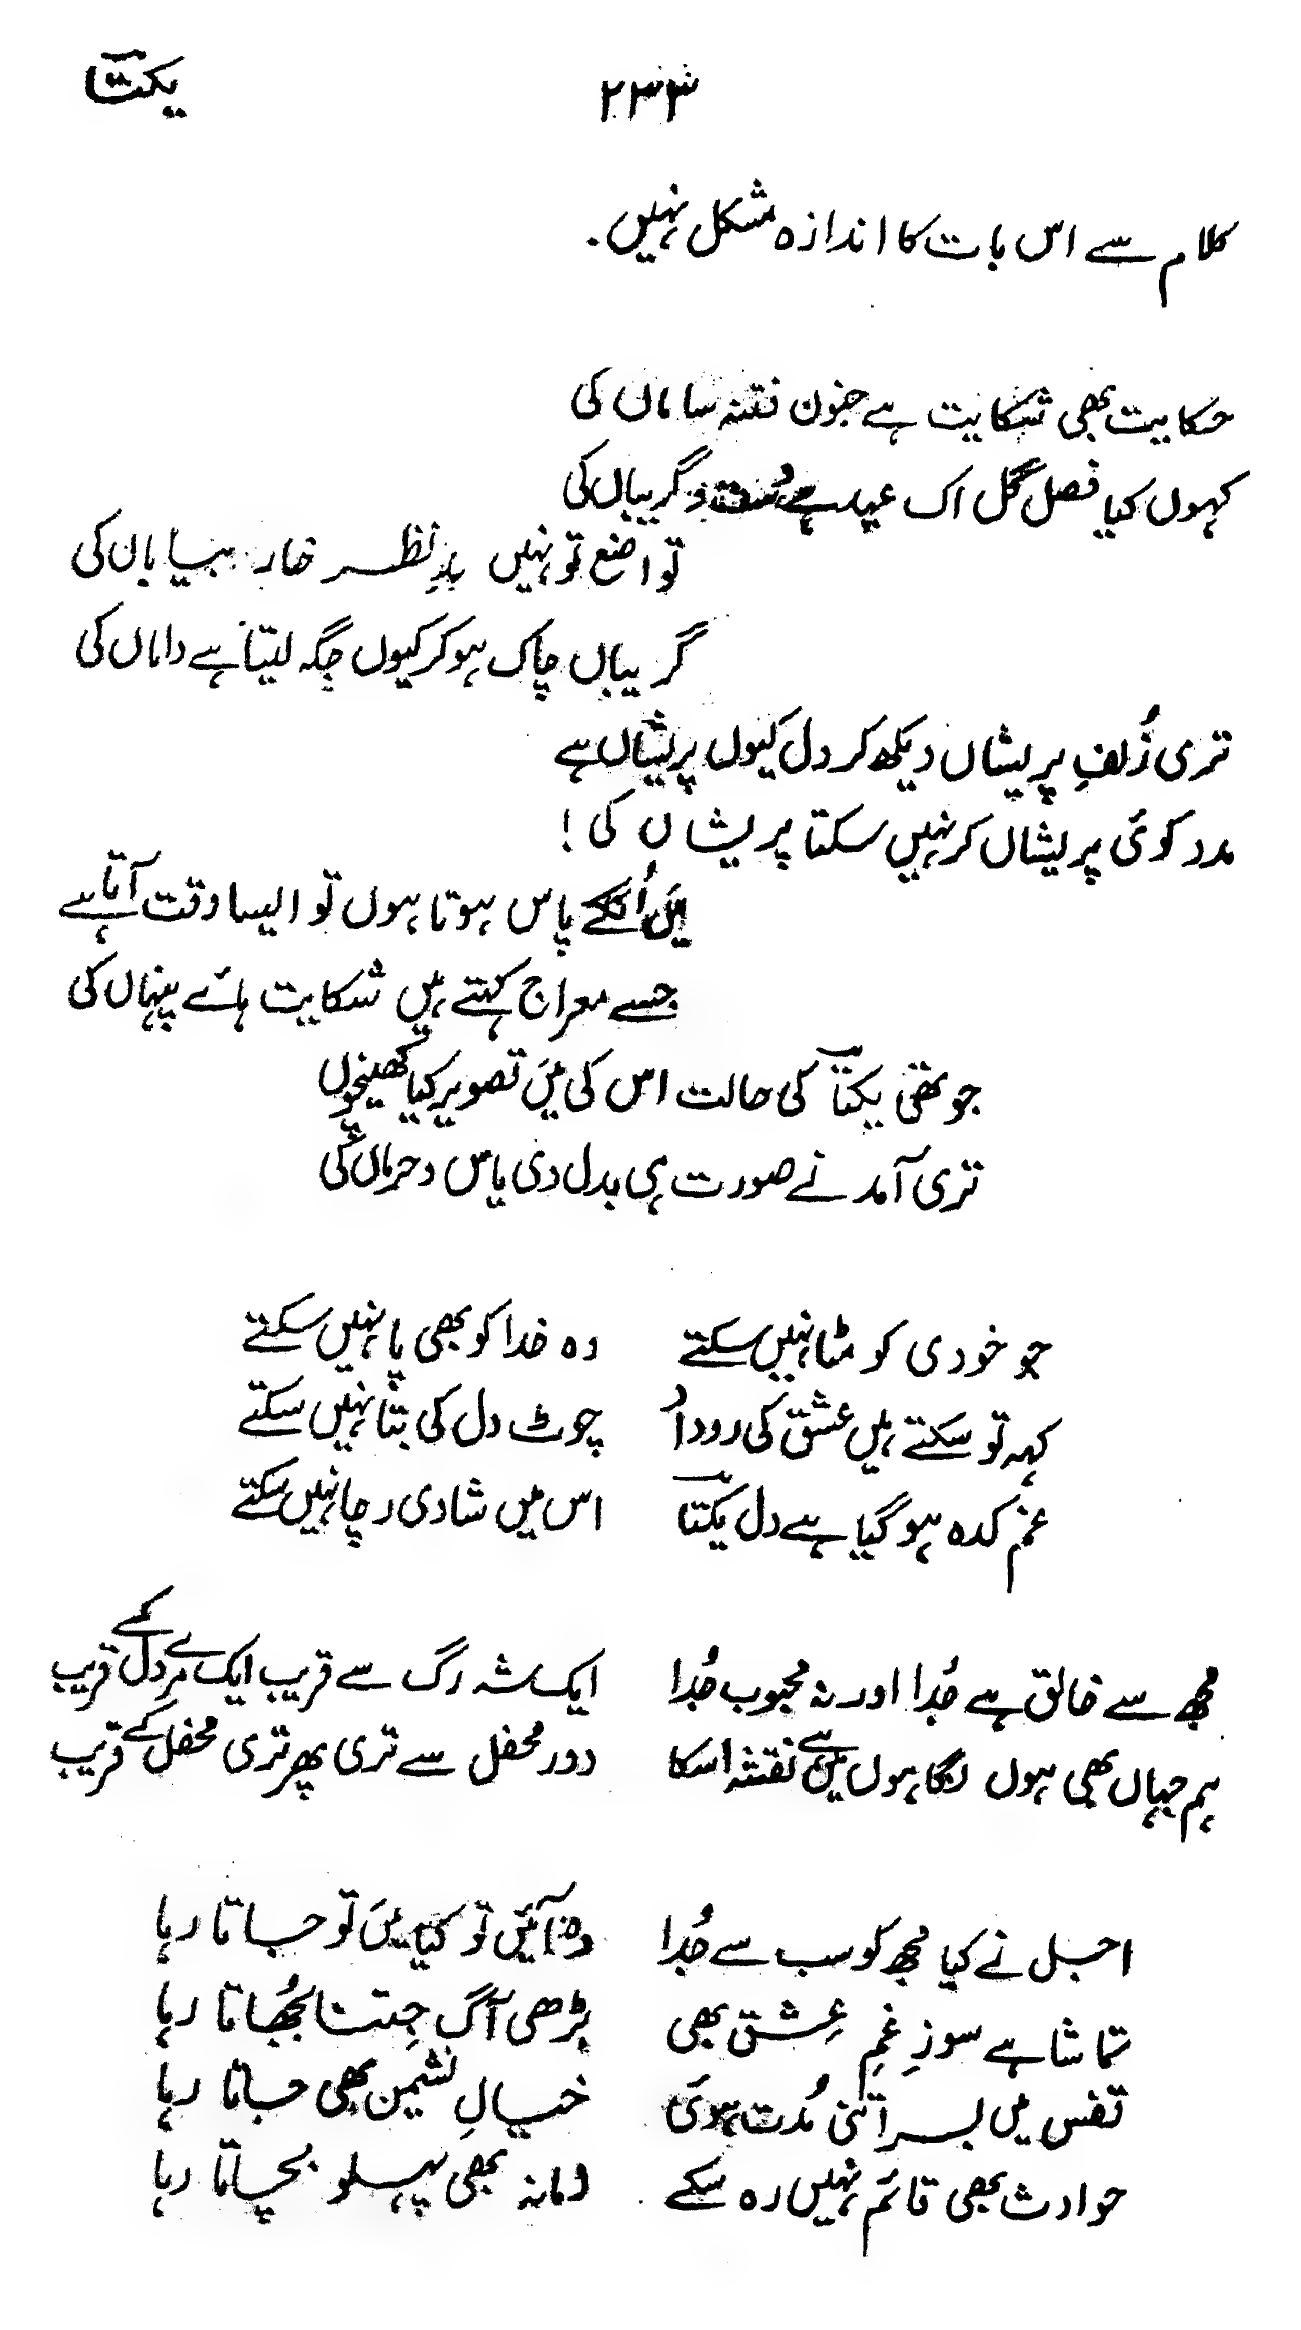 یکتا
۲۳۳
کلام سے اس بات کا اندازہ مشکل نہیں۔
حکایت بھی شکایت ہے جنون فتنہ ساماں کی
کہوں کیا فصل گل اک عید ہے دست و گریباں کی
تواضع تو نہیں مدِنظر خار بیاباں کی
گریباں چاک ہو کر کیوں جگہ لیتا ہے داماں کی
تری زُلفِ پریشاں دیکھ کر دل کیوں پریشاں ہے
مدد کوئی پریشاں کر نہیں سکتا پریشاں کی !
میں اُنکے پاس ہوتا ہوں تو ایسا وقت آتا ہے
جسے معراج کہتے ہیں شکایت ہائے پنہاں کی
جو تھی یکتا کی حالت اس کی میں تصویر کیا کھینچوں
تری آمد نے صورت ہی بدل دی یاس و حرماں کی
جو خودی کو مٹا نہیں سکتے وہ خدا کو بھی پا نہیں سکتے
کہہ تو سکتے ہیں عشق کی روداد چوٹ دل کی بتا نہیں سکتے
غم کدہ ہو گیا ہے دل یکتا اس میں شادی رچا نہیں سکتے
مجھ سے خالق ہے جُدا اور نہ محبوب جُدا ایک شہ رگ سے قریب ایک مرے دل کے قریب
ہم جہاں بھی ہوں لگا ہوں میں ہے نقشہ اسکا دور محفل سے تری پھر تری محفل کے قریب
اجل نے کیا مجھ کو سب سے جُدا وہ آئیں تو کیا میں تو جاتا رہا
تماشا ہے سوزِ غمِ عِشق بھی بڑھی آگ جِتنا بُجھاتا رہا
قفس میں بسر اتنی مُدت ہوئی خیالِ نشیمن بھی جاتا رہا
حوادث بھی قائم نہیں رہ سکے زمانہ بھی پہلو بچاتا رہا